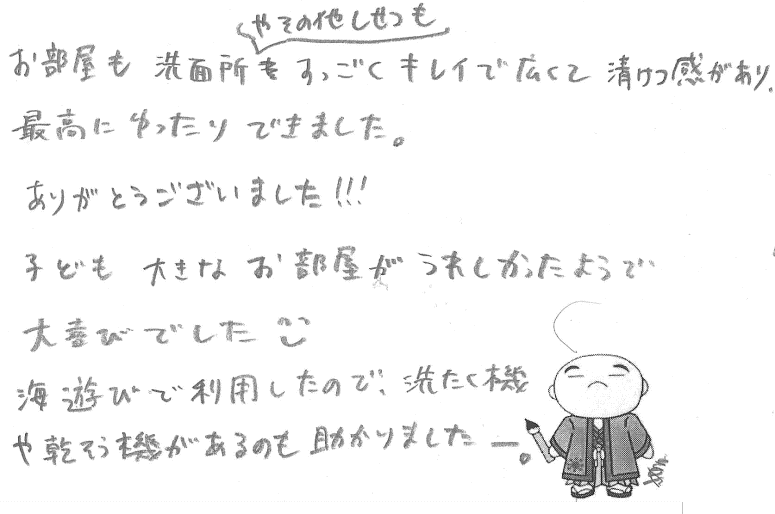 やその他しせつも
お部屋も 洗面所も すっごくキレイで広くて 清けつ感があり、
最高にゆったりできました。
ありがとうございました!!!
子ども 大きなお部屋がうれしかったようで
大喜びでした
海遊びで利用したので、洗たく機
や乾そう機があるのも助かりましたー。